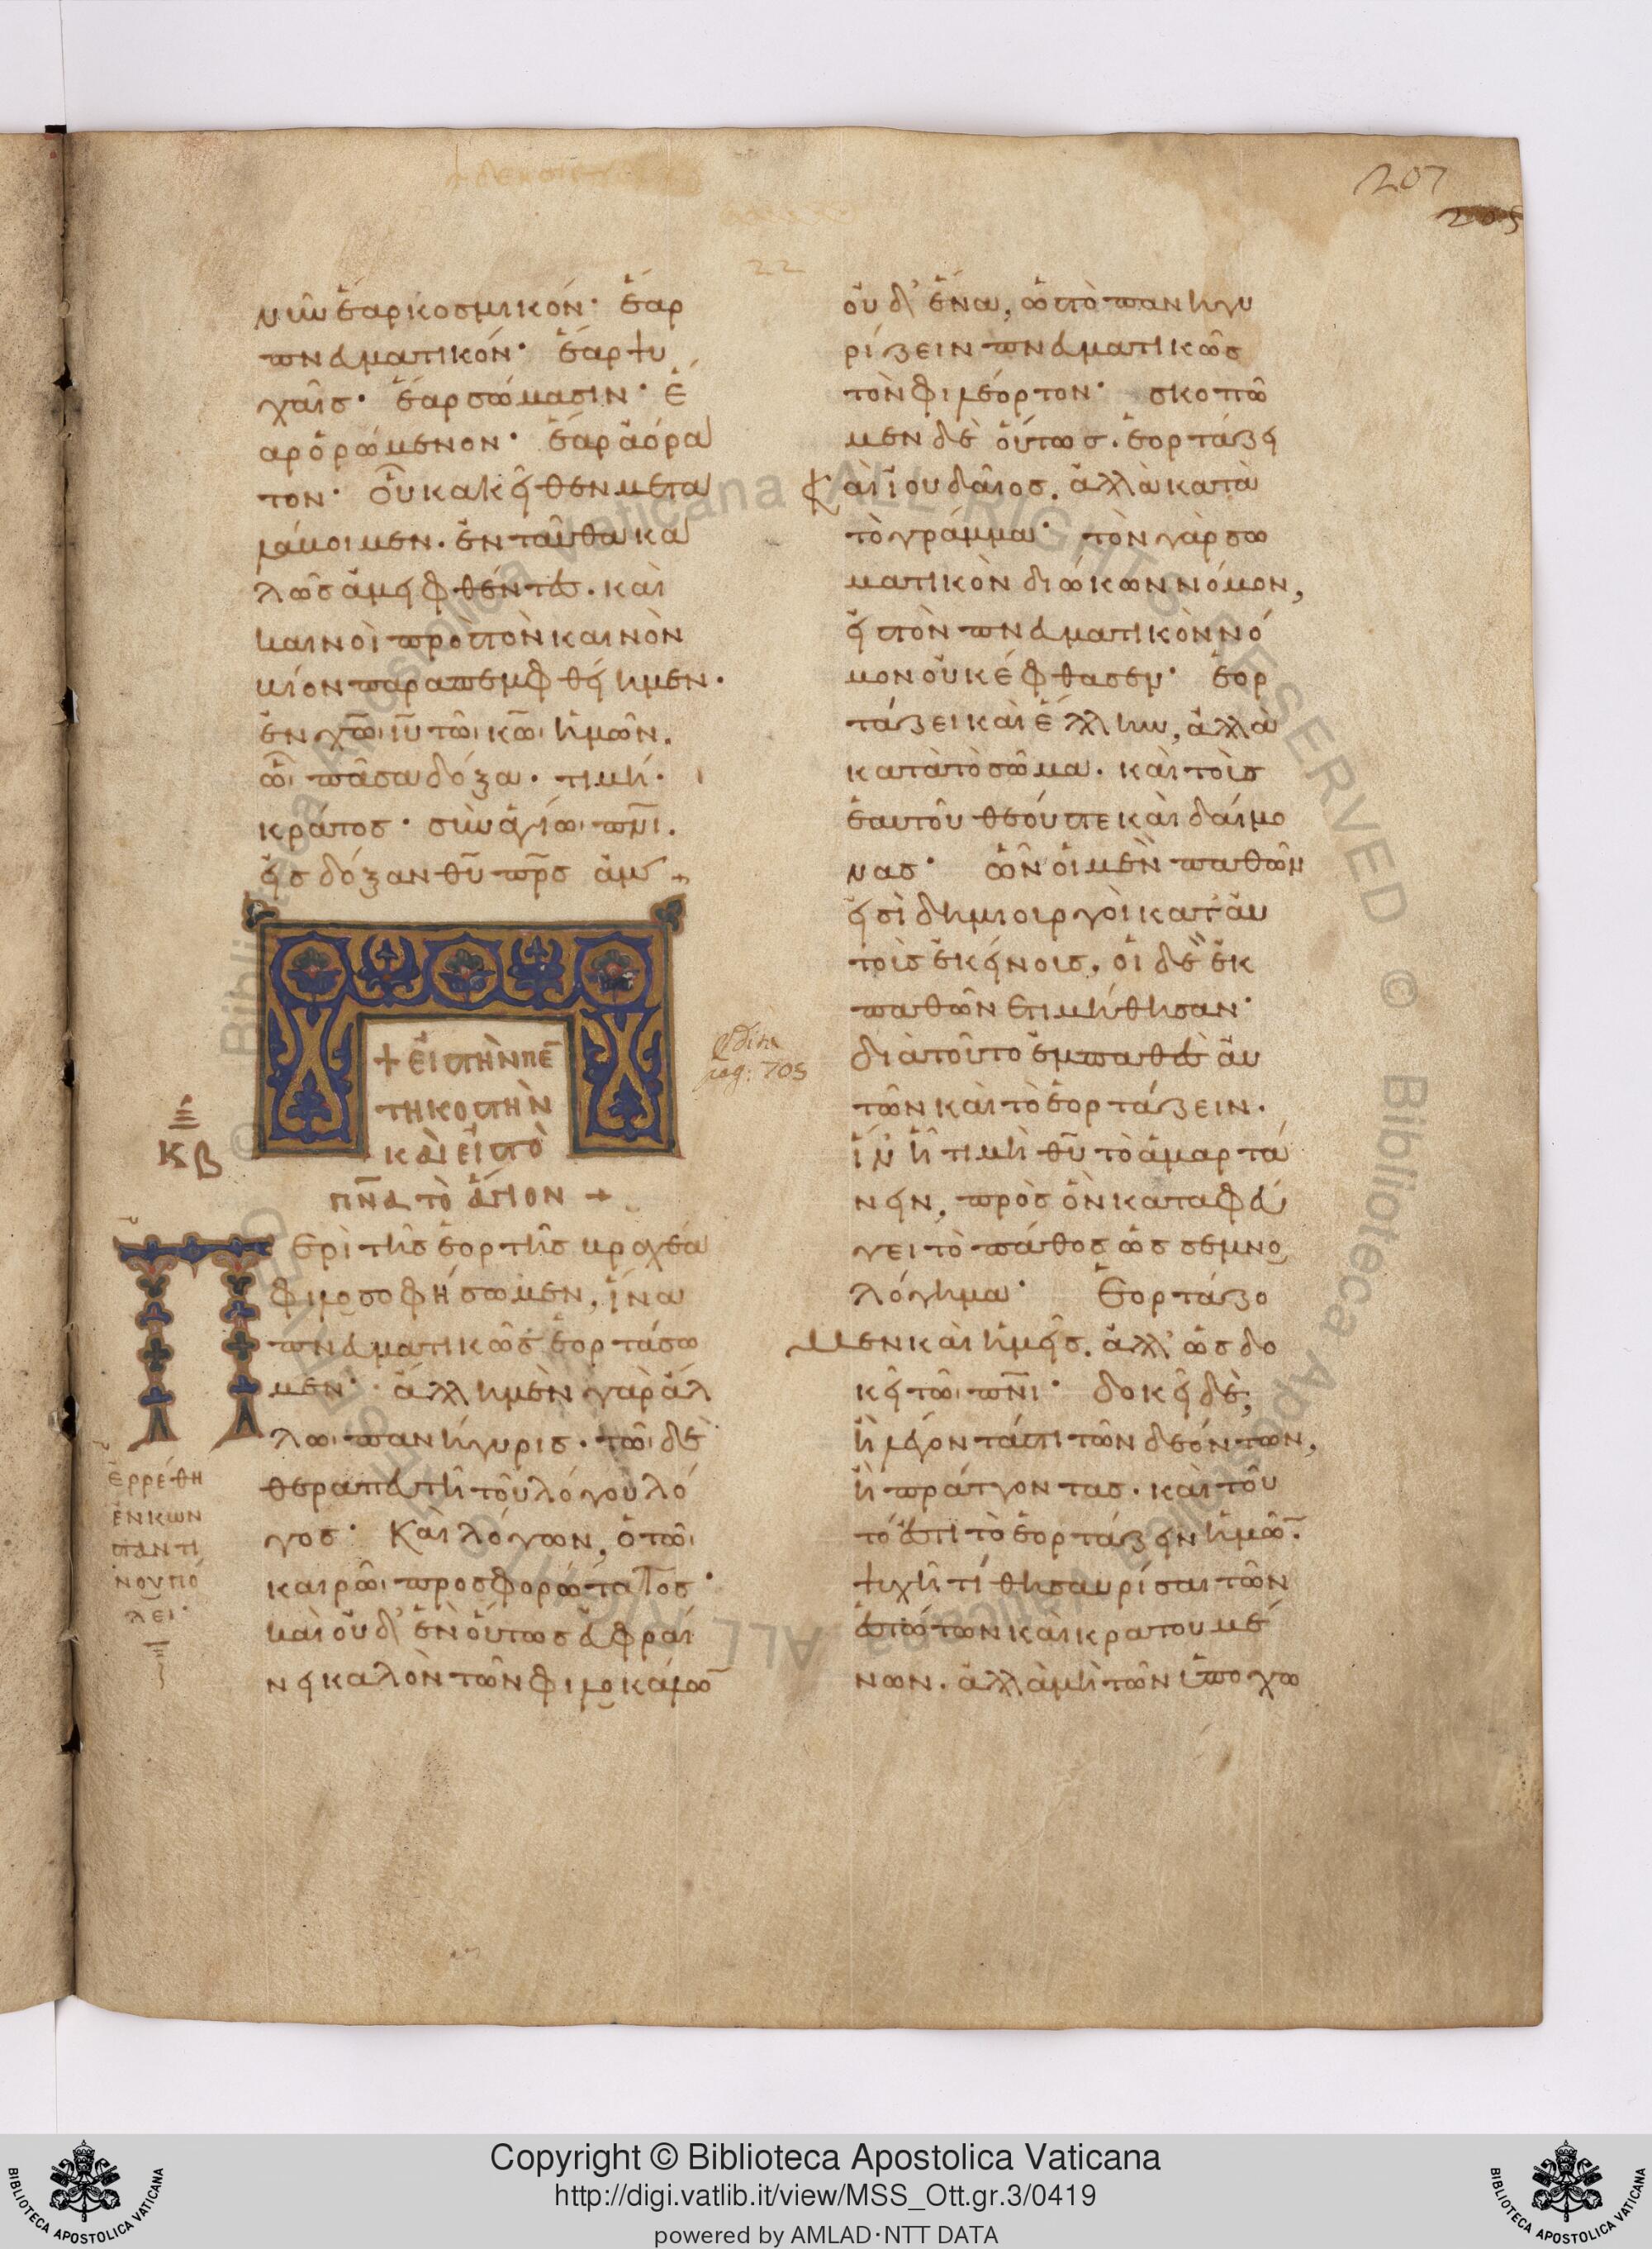 207
205
22
νῦν ἔαρ κοσμικόν· ἔαρ
πνευματικόν· ἔαρ ψυ
χαῖς· ἔαρ σώμασιν· ἔ
αρ ὁρώμενον· ἔαρ ἀόρα
τον· οὗ κἀκεῖθεν μετα
λάβοιμεν. ἐνταῦθα κα
λῶς ἀμειφθέντες. καὶ
καινοὶ πρὸς τὸν καινὸν
βίον παραπεμφθείημεν.
ἐν χω ιυ τῶ κω ἡμῶν.
ὧ πᾶσα δόξα. τιμή.
κράτος· σὺν ἁγίω πνι.
εἰς δόξαν θυ πρς ἀμ
+ εἰς τὴν πε
τηκοστὴν
καὶ εἰς τὸ
πνα τὸ ἅγιον +
κβ
Περὶ τῆς ἑορτῆς βραχέα
φιλοσοφήσωμεν, ἵνα
πνευματικῶς ἑορτάσω
μεν· ἄλλη μὲν γὰρ ἄλ
λω πανήγυρις. τῶ δὲ
θεραπευτῆ τοῦ λόγου λό
γος· Καὶ λόγων, ὁ τῶ
καιρῶ προσφορώτατος·
καὶ οὐδ' ἓν οὕτως εὐφραί
νει καλὸν τῶν φιλοκάλω
ἐρρέθη
ἐν κων
σταντι
νουπό
λει·
edita
pag: 705
οὐδένα, ὡς τὸ πανηγυ
ρίζειν πνευματικῶς
τὸν φιλέορτον· σκοπῶ
μεν δὲ οὕτως. ἑορτάζει
καὶ ἰουδαῖος. ἀλλὰ κατὰ
τὸ γράμμα· τὸν γὰρ σω
ματικὸν διώκων νόμον,
εἰς τὸν πνευματικὸν νό
μον οὐκ ἔφθασεν· ἑορ
τάζει καὶ ἕλλην, ἀλλὰ
κατὰ τὸ σῶμα. καὶ τοὺς
ἑαυτοῦ θεούς τε καὶ δαίμο
νας· ὧν οἱ μὲν παθῶν
εἰσὶ δημιουργοὶ κατ' αὐ
τοὺς ἐκείνους. οἱ δὲ ἐκ
παθῶν ἐτιμήθησαν·
διὰ τοῦτο ἐμπαθὲς αὐ
τῶν καὶ τὸ ἑορτάζειν.
ἵν' ἦ τιμὴ θυ τὸ ἁμαρτά
νειν, πρὸς ὃν καταφεύ
γει τὸ πάθος ὡς σεμνο
λόγημα· Ἑορτάζο
μεν καὶ ἡμεῖς. ἀλλ' ὡς δο
κεῖ τῶ πνι· δοκεῖ δὲ,
ἢ λέγοντάς τι τῶν δεόντων,
ἢ πράττοντας. καὶ τοῦ
τό ἐστι τὸ ἑορτάζειν ἡμῶ
ψυχῆ τι θησαυρίσαι τῶν
ἑστώτων καὶ κρατουμέ
νων. ἀλλὰ μὴ τῶν ὑποχω
Copyright © Biblioteca Apostolica Vaticana
http://digi.vatlib.it/view/MSS_Ott.gr.3/0419
powered by AMLAD·NTT DATA
BIBLIOTECA APOSTOLICA VATICANA
BIBLIOTECA APOSTOLICA VATICANA